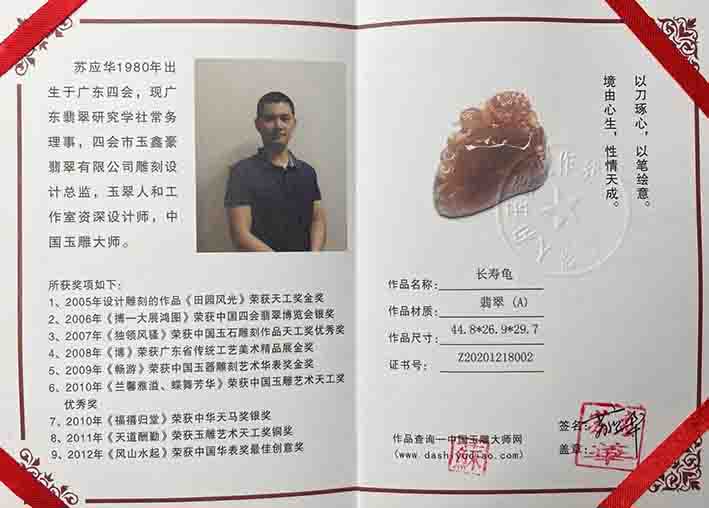 苏应华1980年出
生于广东四会，现广
东翡翠研究学社常务
理事，四会市玉鑫豪
翡翠有限公司雕刻设
计总监，玉翠人和工
作室资深设计师，中
国玉雕大师。
所获奖项如下：
1、2005年设计雕刻的作品《田园风光》荣获天工奖金奖
2、2006年《博一大展鸿图》荣获中国四会翡翠博览会银奖
3、2007年《独领风骚》荣获中国玉石雕刻作品天工奖优秀奖
4、2008年《博》荣获广东省传统工艺美术精品展金奖
5、2009年《畅游》荣获中国玉器雕刻艺术华表奖金奖
6、2010年《兰馨雅溢、蝶舞芳华》荣获中国玉雕艺术天工奖
优秀奖
7、2010年《福禧归堂》荣获中华天马奖银奖
8、2011年《天道酬勤》荣获玉雕艺术天工奖铜奖
9、2012年《风山水起》荣获中国华表奖最佳创意奖
以刀琢心，以笔绘意。
境由心生，性情天成。
作品名称： 长寿龟
作品材质： 翡翠 (A)
作品尺寸： 44.8*26.9*29.7
证书号： Z20201218002
签名：
盖章：
作品查询一中国玉雕大师网
(www.dashiyudiao.com)